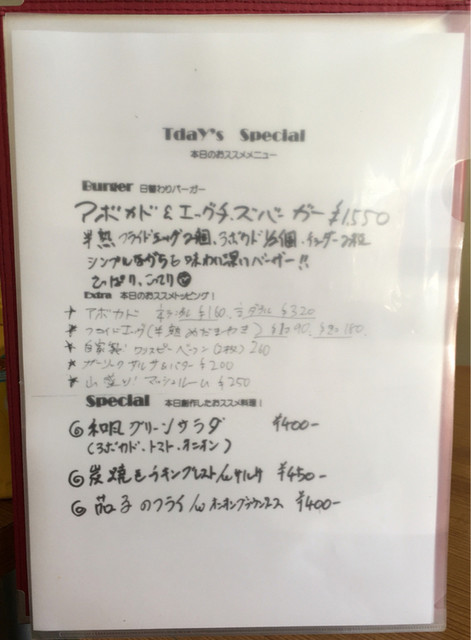 TdaY's Special
本日のおススメメニュー
Burger 日替わりバーガー
アボカド & エッグチーズバーガー ¥1,550
半熟フライドエッグ2個、アボカド1/2個、チェダー2枚
シンプルながらも味わい深いバーガー!!
さっぱり、こってり
Extra 本日のおススメトッピング!
アボカド ¥160, ¥320
フライドエッグ(半熟めだまやき) ¥180
自家製 クリスピーベーコン(2枚) 260
ガーリックサルサ&バター ¥200
山盛り! マッシュルーム ¥250
Special 本日創作したおススメ料理!
和風グリーンサラダ ¥400-
(アボカド、トマト、オニオン)
炭焼きチキンブレスト/w サルサ ¥450-
茄子のフライ/w ¥400-